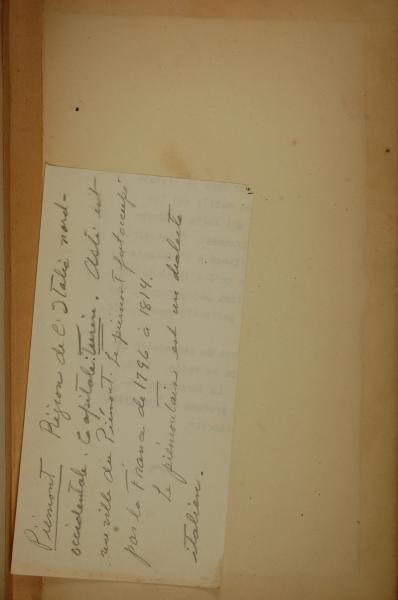 Piémont Région de l'Italie nord-
occidentale. Capitale: Turin. Asti est
une ville du Piémont. Le piémont fut occupé
par la France de 1796 à 1814.
Le piémontais est un dialecte
italien.